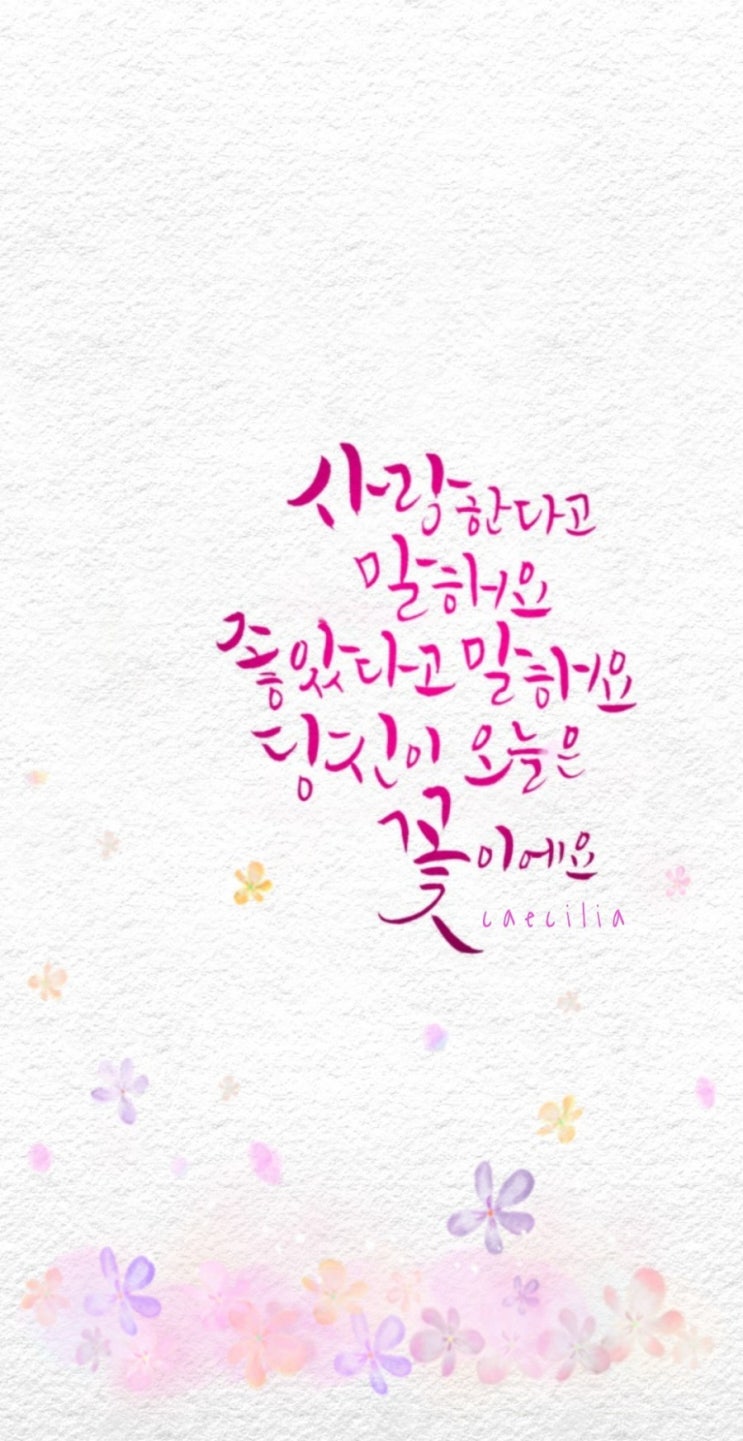 사랑한다고
말해요
좋았다고 말해요
당신이 오늘은
꽃이에요
caecilia